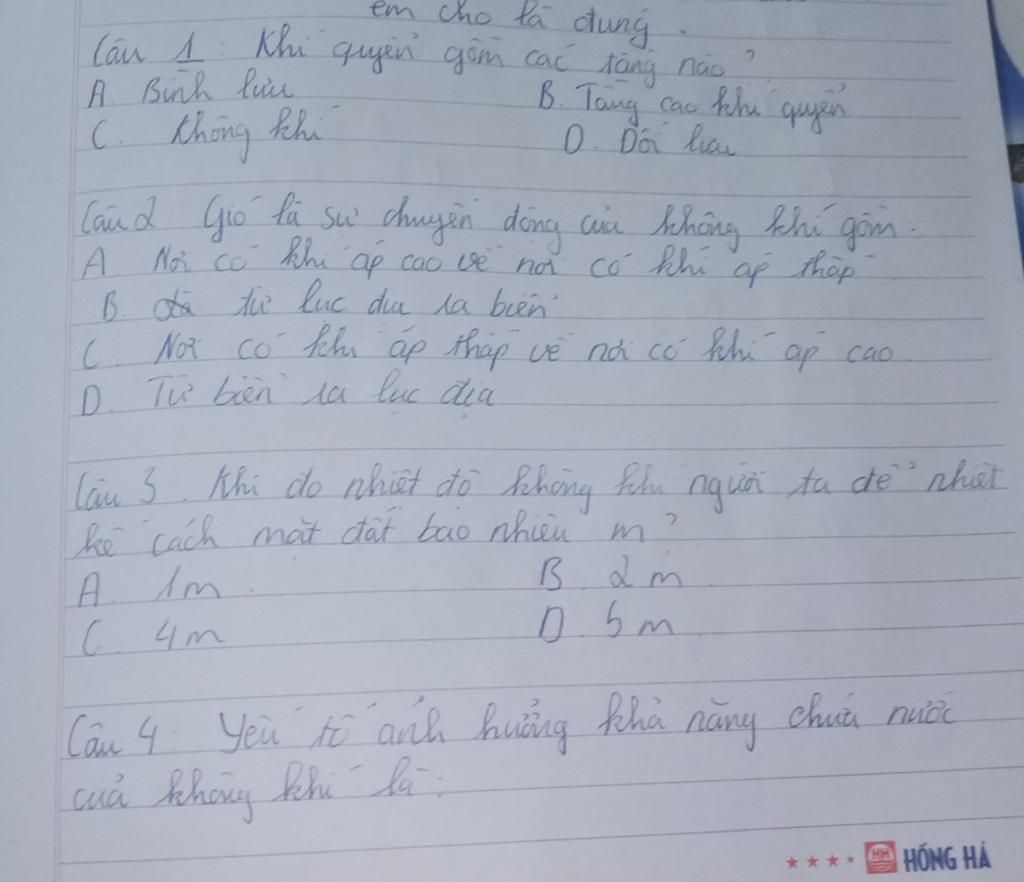 em cho là đúng.
Câu 1: Khí quyển gồm các tầng nào?
A. Bình lưu
B. Tầng cao khí quyển
C. Không khí
D. Đối lưu
Câu 2 Gió là sự chuyển động của không khí gồm:
A. Nơi có khí áp cao về nơi có khí áp thấp
B. từ lục địa ra biển
C. Nơi có khí áp thấp về nơi có khí áp cao.
D. Từ biển ra lục địa
Câu 3. Khi đo nhiệt độ không khí người ta để nhiệt
kế cách mặt đất bao nhiêu m?
A. 1m.
B. 2m.
C. 4m
D. 5m
Câu 4. Yếu tố ảnh hưởng khả năng chứa nước
của không khí là:
HH HỒNG HÀ